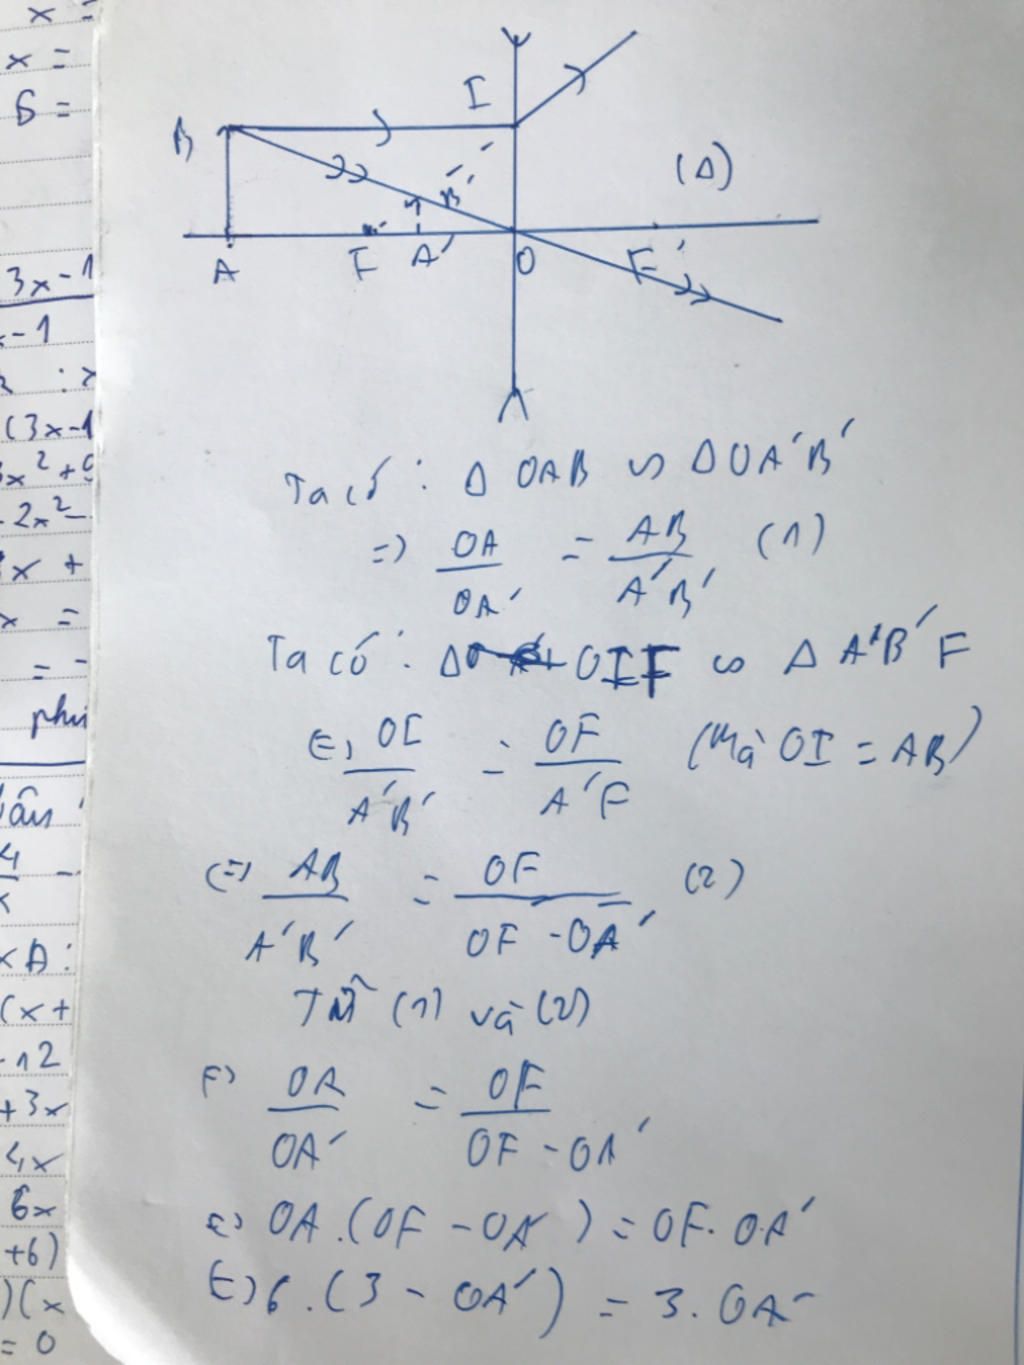 x =
x =
6 =
3x-1
x-1
(3x-1
2x²-
x +
x =
= -
(x+
-12
+3x
4x
6x
+6)
)(x
= 0
I
B
B'
(Δ)
A
F
A'
O
F'
Ta có : Δ OAB ∽ Δ OA'B'
=> OA/OA' = AB/A'B' (1)
Ta có : Δ OIF ∽ Δ A'B'F
<=> OI/A'B' = OF/A'F (Mà OI = AB)
<=> AB/A'B' = OF/OF - OA' (2)
Từ (1) và (2)
=> OA/OA' = OF/OF - OA'
<=> OA.(OF - OA') = OF.OA'
<=> 6.(3 - OA') = 3.OA'